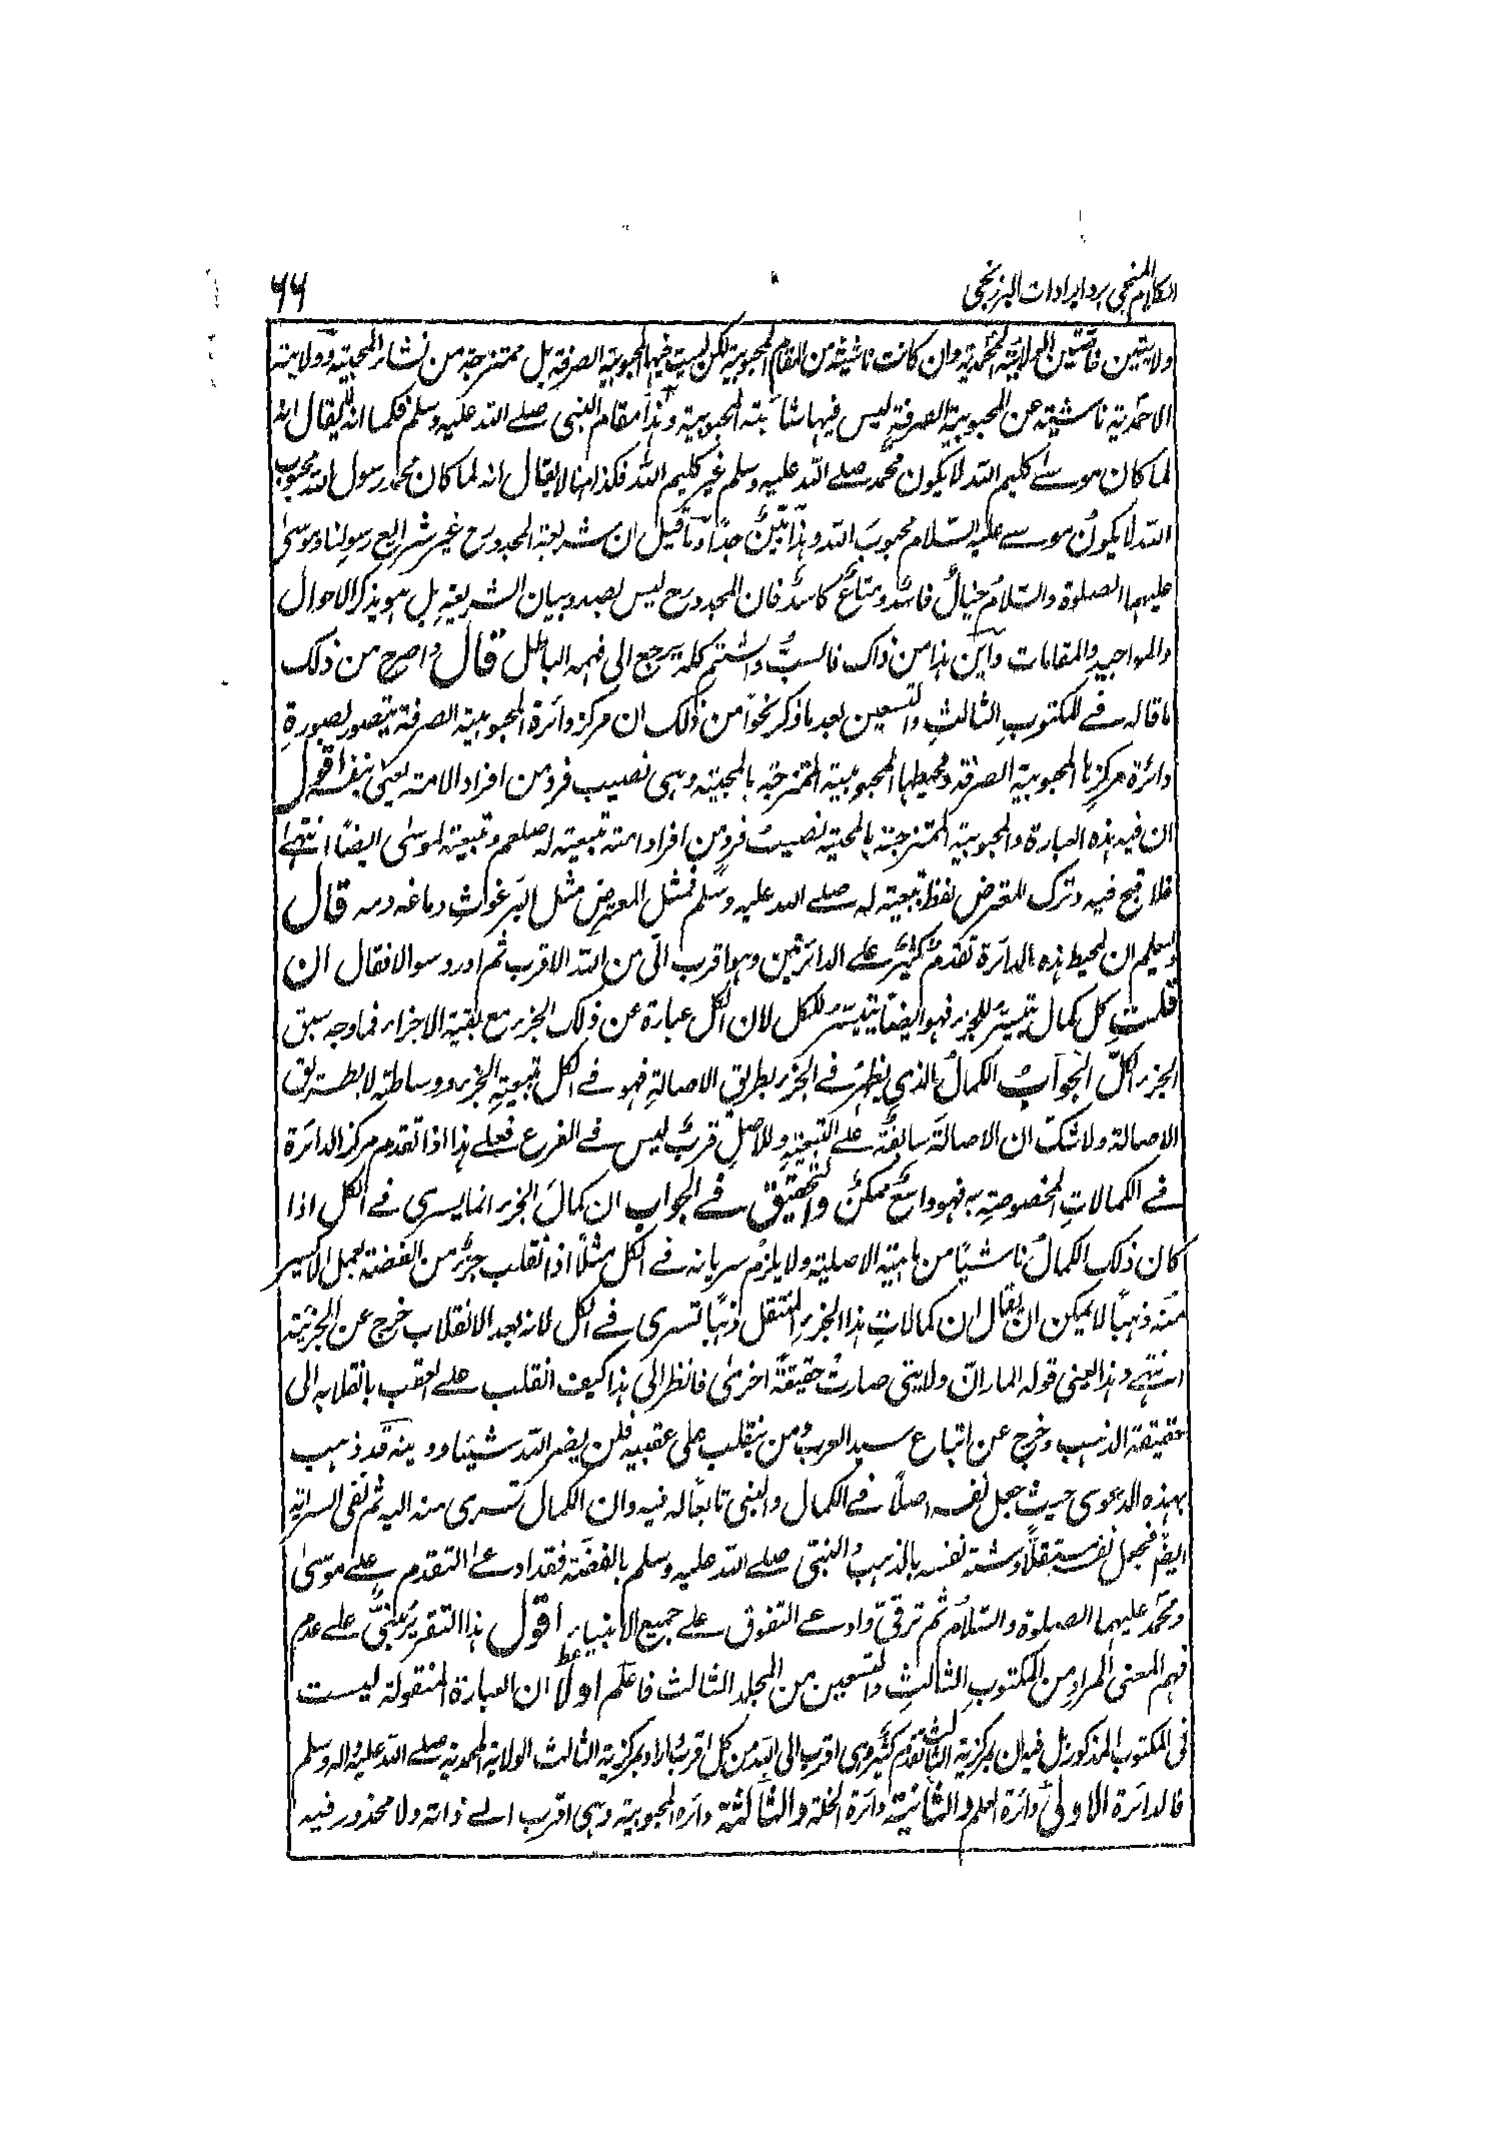 الكلام المنجي برد ايرادات البرزنجي
٦٦
ولايتين فاقتين الولاية المحمدية وان كانت ناشئة من المقام المحبوبية لكن ليست فيها المحبوبية الصرفة بل ممتزجة من نشاء المحبية وولاية
الاحمدية ناشية عن المحبوبية الصرفة ليس فيها شائبة المحبوبية وهذا مقام النبي صلے الله عليه وسلم فكما انه لا يقال انه
لما كان موسے كليم الله لا يكون محمد صلے الله عليه وسلم غير كليم الله فكذا هنا لا يقال انه لما كان محمد رسول الله محبوب
الله لا يكون موسے عليه السلام محبوبَ الله وهذا بيّنٌ جدًا وما قيل ان شريعة الممدوح غير شرايع رسولنا وموسىٰ
عليهما الصلوة والسلام خيالٌ فاسدٌ ومتاعٌ كاسدٌ فان الممدوح ليس بصدد بيان الشريعة بل هو يذكر الاحوال
والمواجيد والمقامات واين هذا من ذاك فالسبُّ والشتم كله يرجع الى فهمه الباطل قال واصرح من ذلك
ما قاله فے المكتوبِ الثالثِ والتسعين بعد ما ذكر نحوًا من ذلك ان مركز دائرة المحبوبية الصرفة يتصور بصورةِ
دائرة مركزها المحبوبية الصرفة ومحيطها المحبوبية الممتزجة بالمحبية وهى نصيب فرد من افراد الامة يعنى نفسه اقول
ان فيه هذه العبارة والمحبوبية الممتزجة بالمحبية نصيبُ فردٍ من افراد امته تبعية له صلعم وتبعية لموسىٰ ايضًا انتهےٰ
فلا قبح فيه وترك المعترض لفظ تبعية له صلے الله عليه وسلم فمثل المعترض مثل البرغوثِ دماغه دمه قال
وليعلم ان لمحيط هذه الدائرة تقدمٌ كثيرٌ علے الدائرتين وهو اقرب الى من الله الاقرب ثم اورد سوالا فقال ان
قلتَ كل كمال تيسر للجزء فهو ايضًا يتيسّر للكل لان الكل عبارة عن ذلك الجزء مع بقية الاجزاء فما وجه سبق
الجزء الكلَّ الجوابُ الكمالُ الذي يظهرُ فے الجزء بطريق الاصالةِ فهو فے الكل تبعيةِ الجزء ووساطته لا بطريق
الاصالة ولا شكَّ ان الاصالةَ سابقةٌ علے التبعيةِ وللاصلِ قربٌ ليس فے الفرع فعلے هذا اذا تقدم مركز الدائرة
فے الكمالاتِ المخصوصةِ به فهو واسعٌ ممكنٌ والتحقيق فے الجواب ان كمالَ الجزء انما يسرى فے الكل اذا
كان ذلك الكمالُ ناشيًا من ماهيته الاصلية ولا يلزم سريانه فے الكل مثلًا اذا انقلب جزءٌ من الفضة بعمل الاكسير
منه ذهبًا لا يمكن ان يقال ان كمالاتِ هذا الجزء المنتقل ذهبًا تسرى فے الكل لانه بعد الانقلاب خرج عن الجزئية
انتهےٰ وهذا يعنى قوله المار ان ولايتى صارت حقيقةً اخرىٰ فانظر الى هذا كيف انقلب علے العقب بانقلابه الى
حقيقة الذهب وخرج عن اتباع سيد العرب ومن ينقلب على عقبيه فلن يضر الله شيئا ودينه قد ذهب
بهذه الدعوى حيث جعل نفسه اصلًا فے الكمال والنبى تابعًا له فيه وان الكمال تسرى منه اليه ثم نفى السراية
ايضًا فجعل نفسه مستقلًا وشبّه نفسه بالذهب والنبى صلے الله عليه وسلم بالفضة فقد ادعےٰ التقدم علےٰ موسىٰ
ومحمد عليهما الصلوة والسلامُ ثم ترقىٰ وادعے التفوق علے جميع الانبياء اقول هذا التقرير مبنىٌّ علے عدم
فهم المعنى المراد من المكتوبِ الثالثِ والتسعين من المجلد الثالث فاعلم اولًا ان العبارة المنقولة ليست
فى المكتوب المذكور بل فيه ان لمركزية الثالث تقدمٌ كثيرٌ وهى اقرب الى الله من كل اقرب اراد بمركزية الثالث الولاية المحمدية صلے الله عليه واله وسلم
فالدائرة الاولىٰ دائرة العلم والثانية دائرة الخلة والثالثة دائرة المحبوبية وهى اقرب الے ذاته ولا محذور فيه